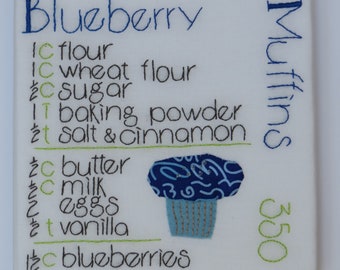 Blueberry
Muffins
1 C flour
1 C wheat flour
½ C sugar
1 T baking powder
½ t salt & cinnamon
½ C butter
½ C milk
2 eggs
½ t vanilla
1½ C blueberries
350